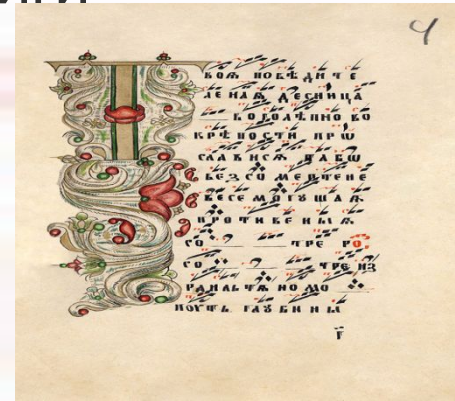 4
Т
ВОѦ ПОБѢДИТЕ
ЛЕНАѦ ДЕСНИЦА
БОГОЛѢПНО ВО
КРѢПОСТИ ПРѠ
СЛАВИСѦ ТАБѠ
БЕЗСО МЕРТЕНЕ
ВЕСЕМОГУЩАѦ
ПРОТИВЕНЫѦ
СО ТРЕ РО
СО ТРЕ ИЗ
РАИЛЬТѦНОМО
ПОУТЬ ГЛУБИНЫ